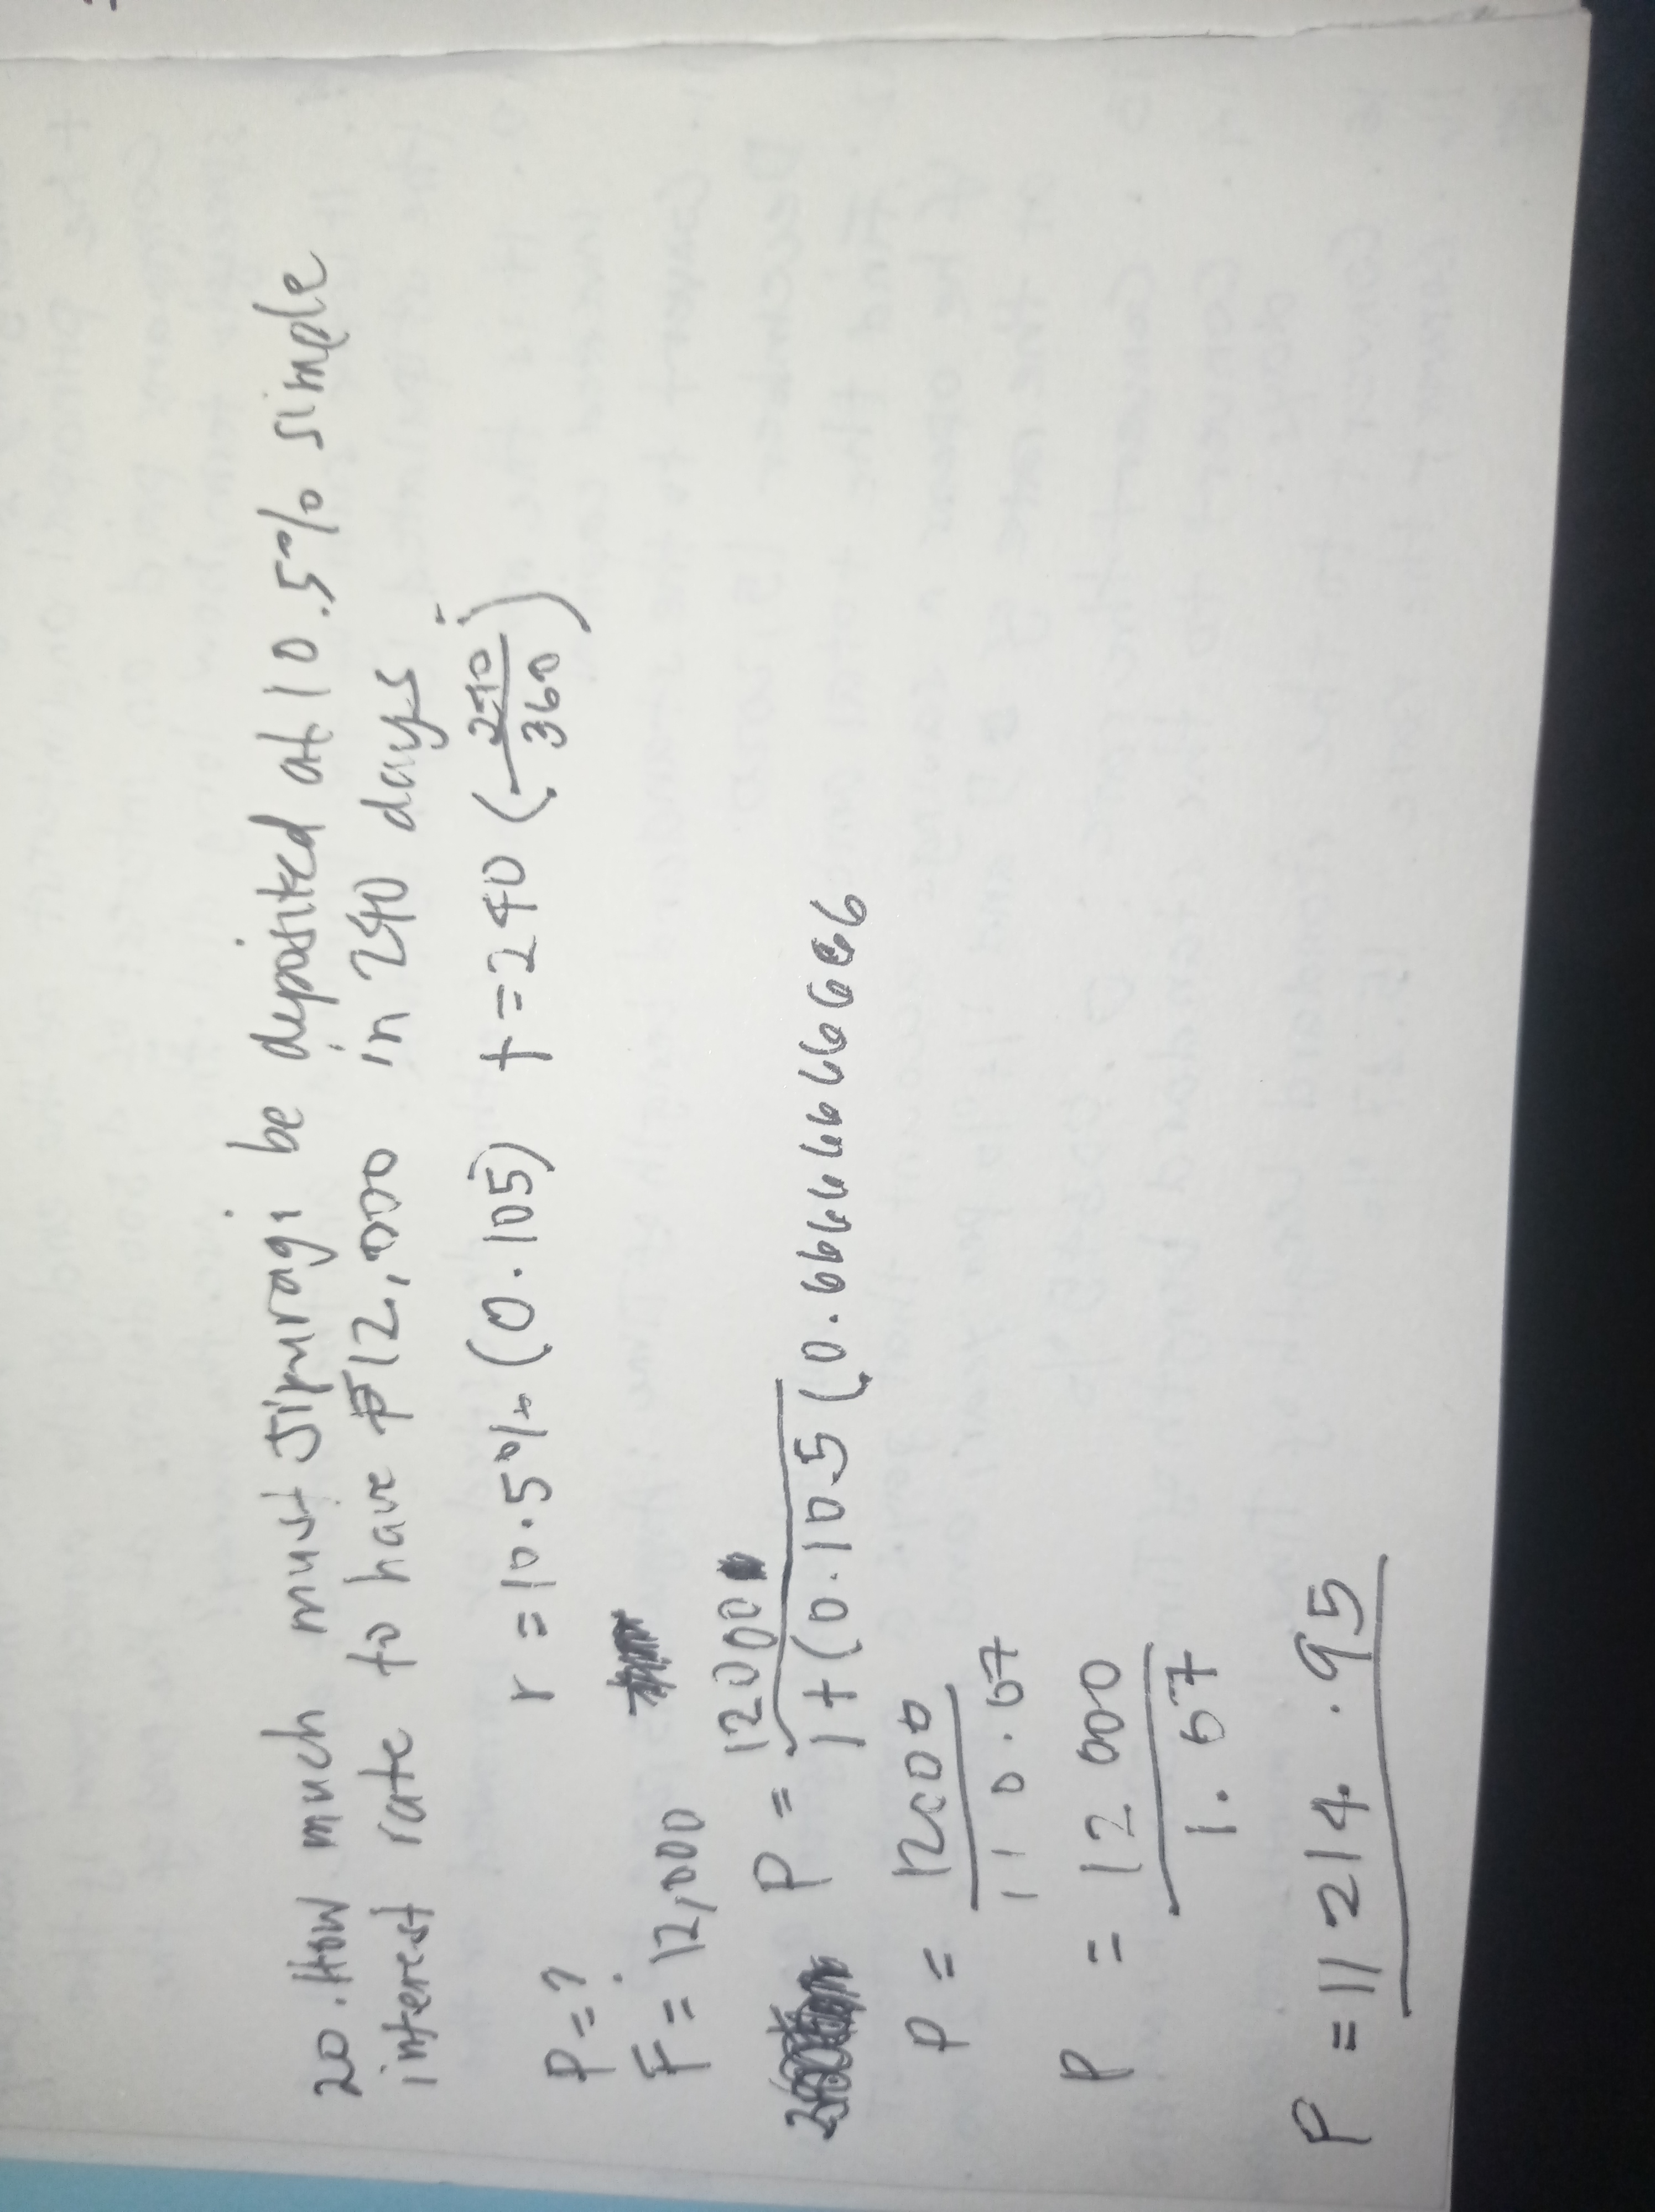 20. How much must Jipuragi be deposited at 10.5% simple
interest rate to have ₱12,000 in 240 days
P = ? r = 10.5% (0.105) t = 240 (240/360)
F = 12,000
P = 12000 / 1 + (0.105 (0.66666666666
P = 12000 / 1 0.67
P = 12 000 / 1.67
P = 11 214.95